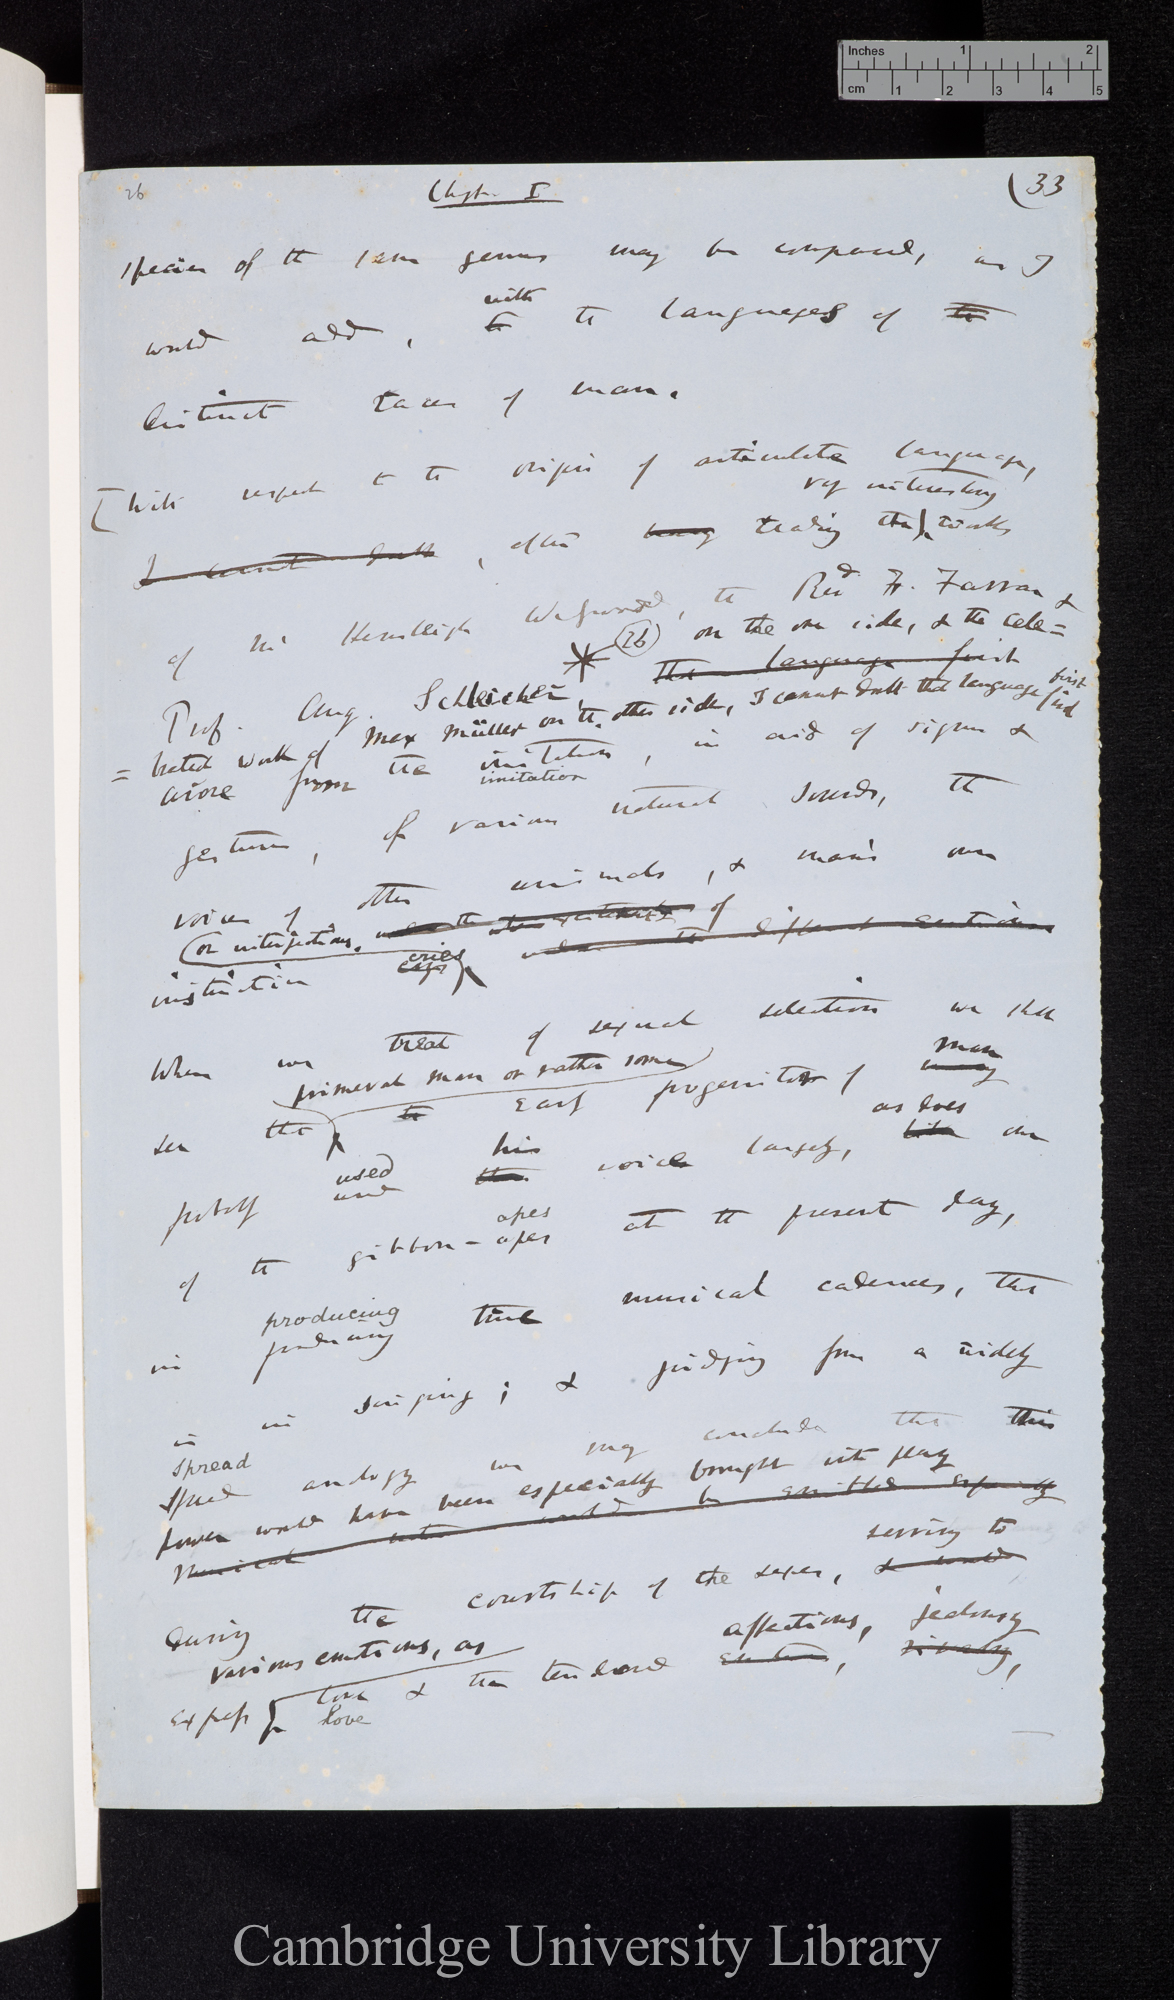 Inches 1 2
cm 1 2 3 4 5
26 Chapter I (33
species of the same genus may be compared, as I
with
would add, to the languages of the
distinct races of man.
[With respect to the origin of articulate language,
very interesting
I cannot doubt, after having reading the works
of Mr Hensleigh Wedgwood, the Revd F. Farrar &
(26) on the one side, & the cele=
Prof. Aug. Schleicher, that language first
=brated work of Max Müller on the other side, I cannot doubt that language first
arose from the imitation, in aid of signs &
imitation
gestures, of various natural sounds, the
voices of other animals, & man's own
(or interjections, under the of
instinctive cries under the different emotions
cries
When we treat of sexual selection we shall
primeval man or rather some man
see that the early progenitor of
his as does
probably used voice largely, like one
used
apes
of the gibbon-apes at the present day,
producing
in producing true musical cadences, that
is in singing; & judging from a widely
spread
spread analogy we may conclude that this
power would have been especially brought into play
Musical notes would be emitted especially
serving to
during the courtship of the sexes, & would
various emotions, as affections, jealousy
express love & the tenderer emotions, rivalry,
love
Cambridge University Library